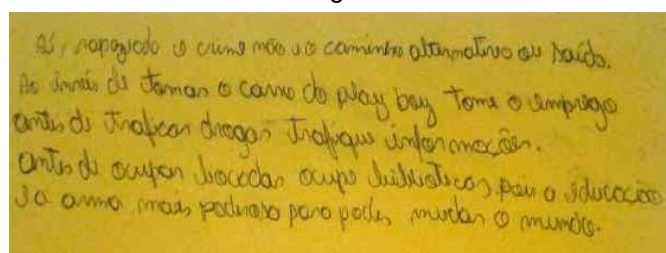 Aí, rapaziada o crime não é o caminho alternativo ou saída.
Ao invés de tomar o carro do play boy tome o emprego
antes de traficar drogas trafique informações.
antes de ocupar bocadas ocupe bibliotecas pois a educação
é a arma mais poderosa para poder mudar o mundo.